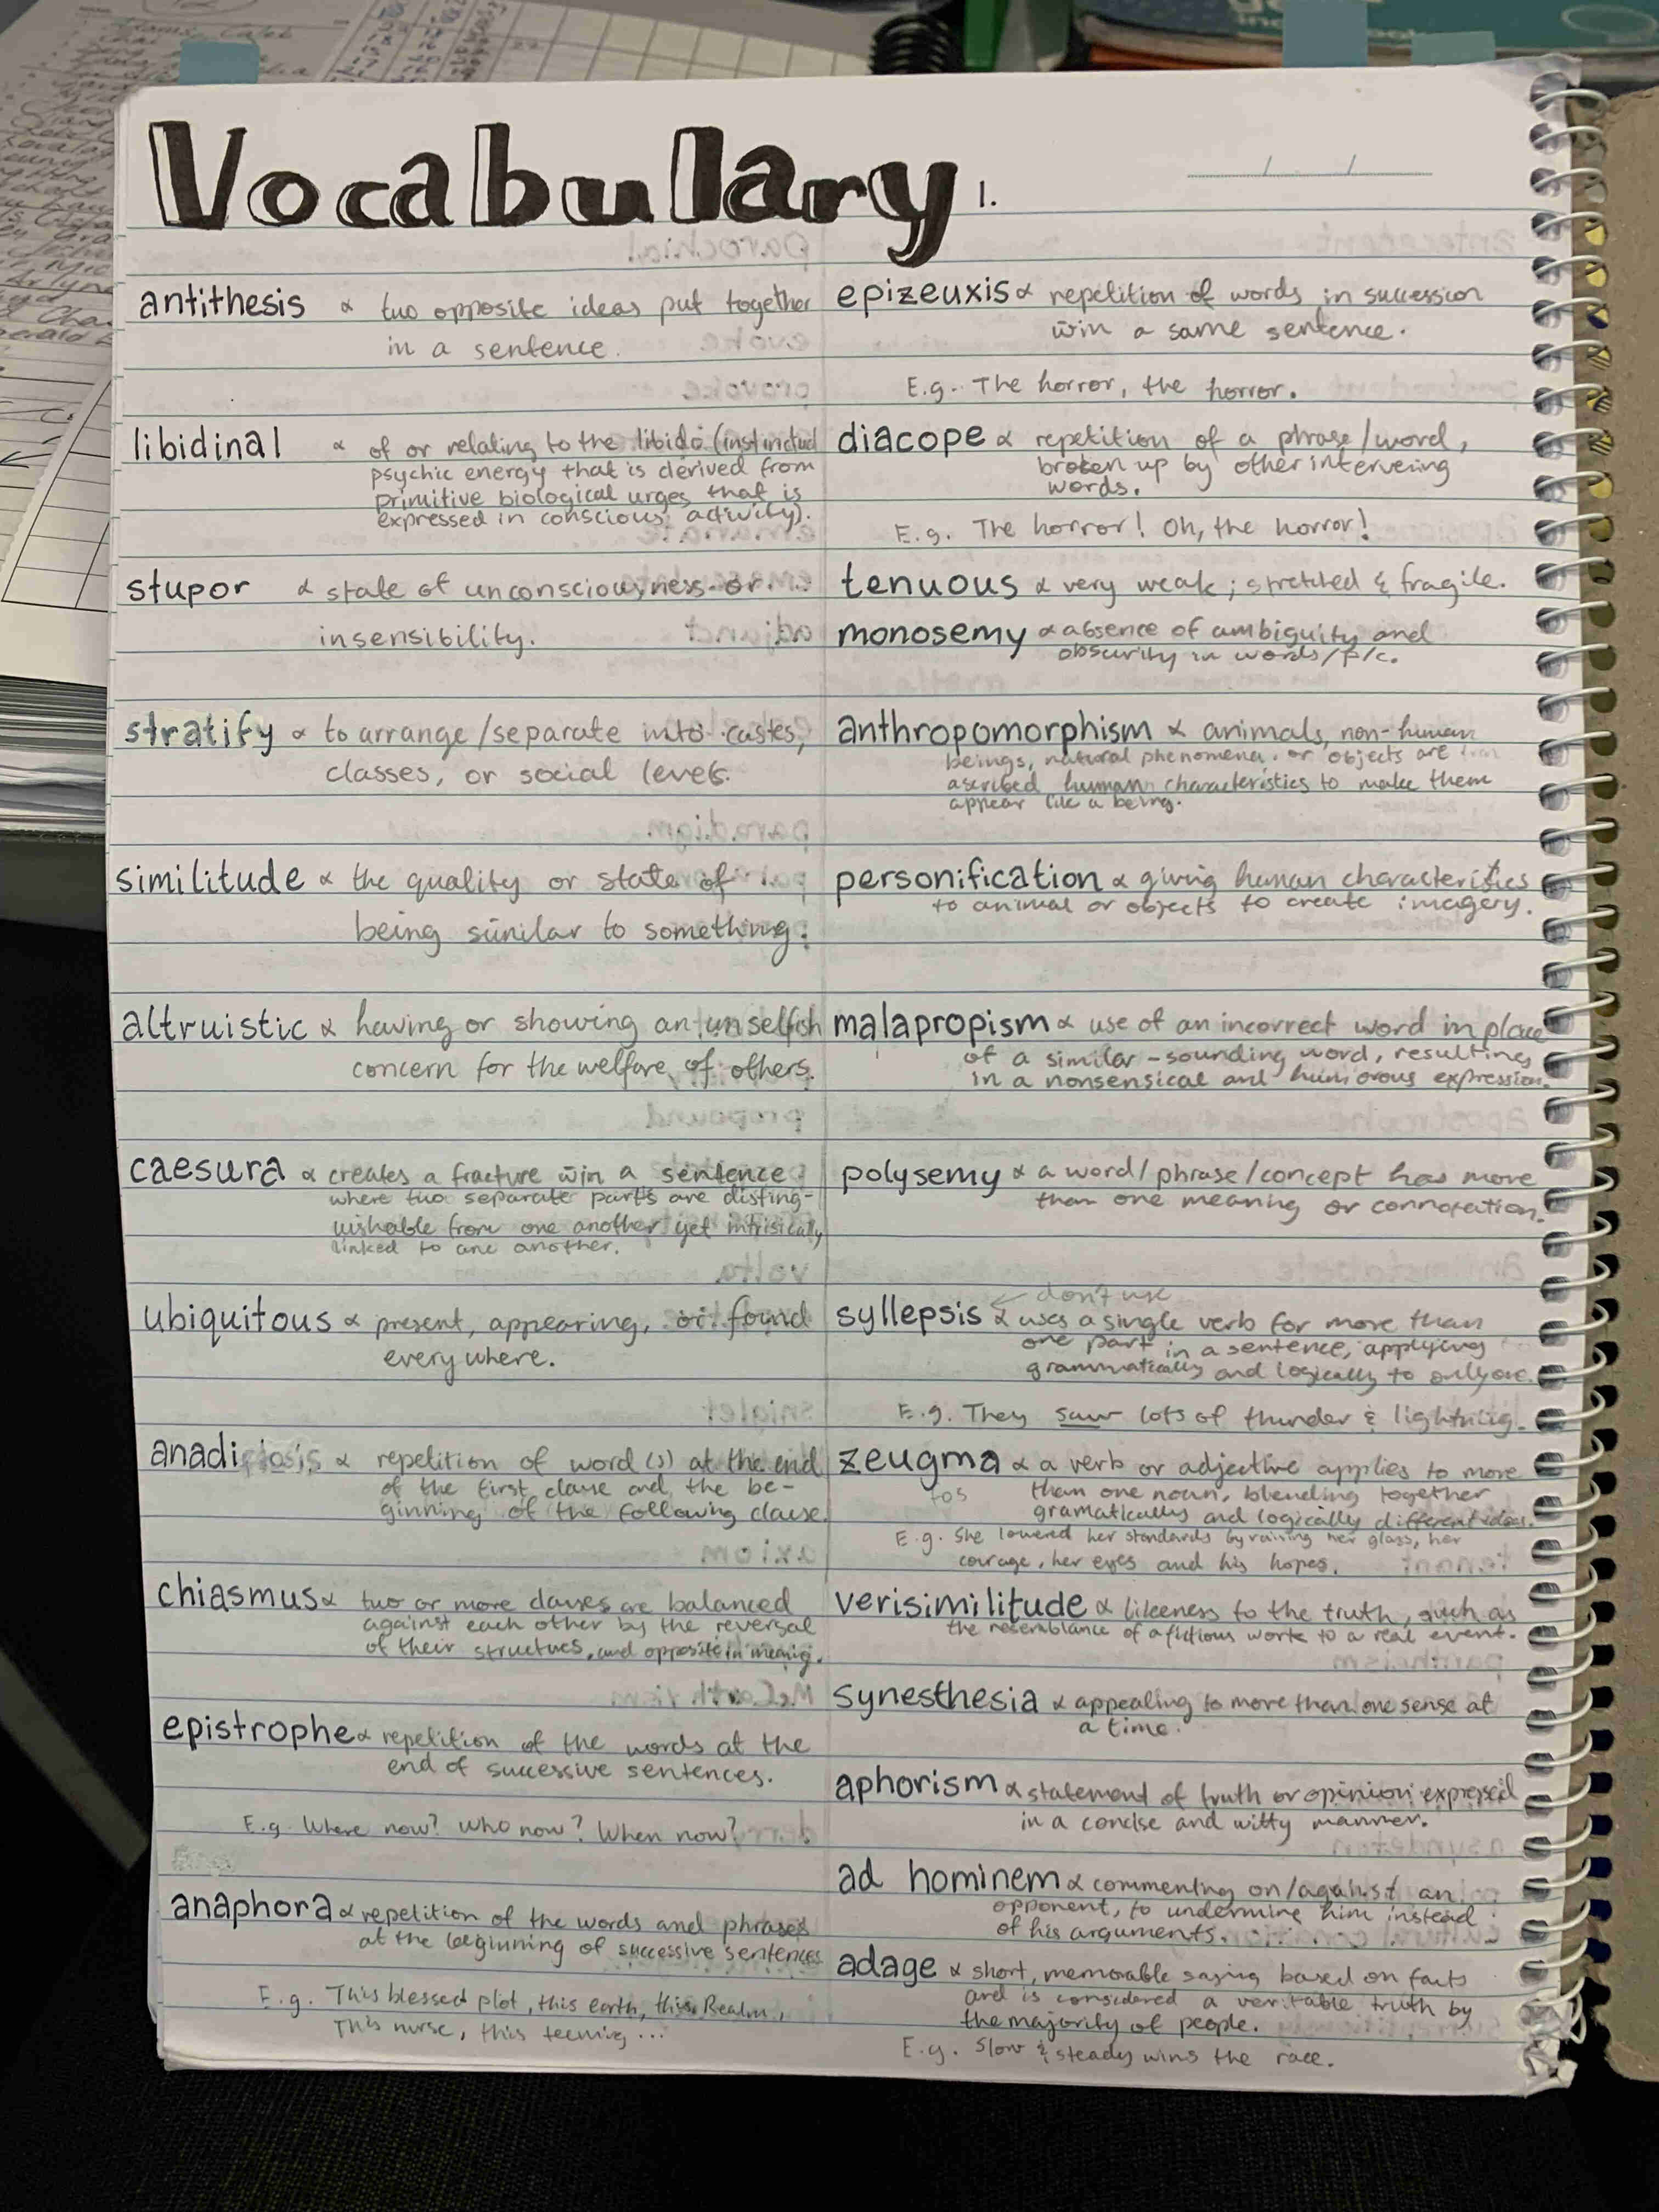 Vocabulary 1.
antithesis ∝ two opposite ideas put together
in a sentence.
libidinal ∝ of or relating to the libido (instinctual
psychic energy that is derived from
primitive biological urges that is
expressed in conscious activity).
stupor ∝ state of unconsciousness or
insensibility.
stratify ∝ to arrange/separate into castes,
classes, or social levels.
similitude ∝ the quality or state of
being similar to something.
altruistic ∝ having or showing an unselfish
concern for the welfare of others.
caesura ∝ creates a fracture w̄in a sentence
where two separate parts are disting-
uishable from one another yet intrisically
linked to one another.
ubiquitous ∝ present, appearing, or found
everywhere.
anadiplosis ∝ repetition of word(s) at the end
of the first clause and the be-
ginning of the following clause.
chiasmus ∝ two or more clauses are balanced
against each other by the reversal
of their structures, and opposite in meaning.
epistrophe ∝ repetition of the words at the
end of successive sentences.
E.g. Where now? Who now? When now?
anaphora ∝ repetition of the words and phrases
at the beginning of successive sentences
E.g. This blessed plot, this earth, this Realm,
This nurse, this teeming ...
epizeuxis ∝ repetition of words in succession
w̄in a same sentence.
E.g. The horror, the horror.
diacope ∝ repetition of a phrase/word,
broken up by other intervening
words.
E.g. The horror! Oh, the horror!
tenuous ∝ very weak; stretched & fragile.
monosemy ∝ absence of ambiguity and
obscurity in words/p/c.
anthropomorphism ∝ animals, non-human
beings, natural phenomena, or objects are
ascribed human characteristics to make them
appear like a being.
personification ∝ giving human characteristics
to animal or objects to create imagery.
malapropism ∝ use of an incorrect word in place
of a similar-sounding word, resulting
in a nonsensical and humorous expression.
polysemy ∝ a word/phrase/concept has more
than one meaning or connotation.
← don't use
syllepsis ∝ uses a single verb for more than
one part in a sentence, applying
grammatically and logically to only one.
E.g. They saw lots of thunder & lightning.
zeugma ∝ a verb or adjective applies to more
than one noun, blending together
gramatically and logically different ideas.
E.g. She lowered her standards by raising her glass, her
courage, her eyes and his hopes.
verisimilitude ∝ likeness to the truth, such as
the resemblance of a fictious work to a real event.
synesthesia ∝ appealing to more than one sense at
a time.
aphorism ∝ statement of truth or opinion expressed
in a concise and witty manner.
ad hominem ∝ commenting on/against an
opponent, to undermine him instead
of his arguments.
adage ∝ short, memorable saying based on facts
and is considered a veritable truth by
the majority of people.
E.g. Slow & steady wins the race.